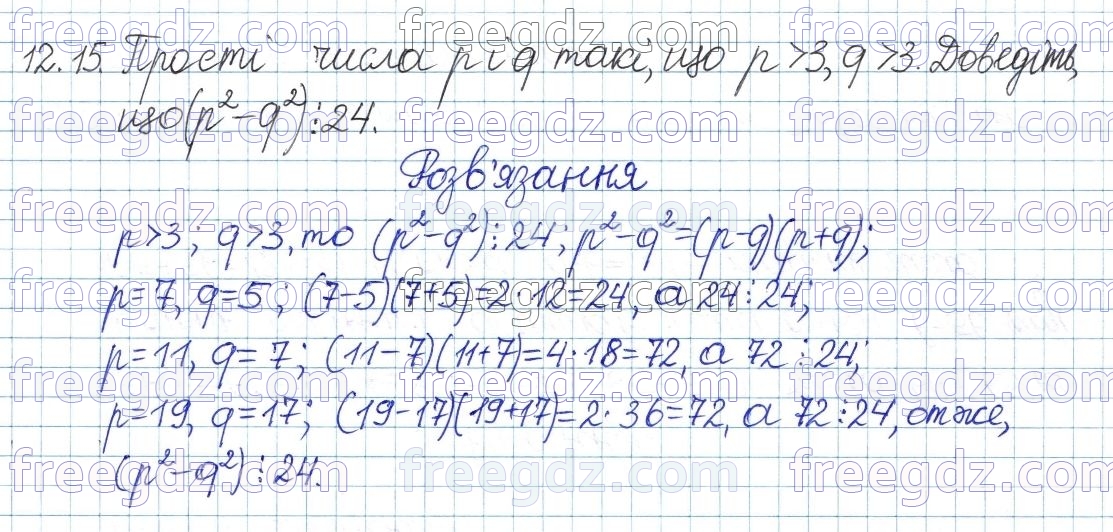 12.15. Прості числа p і q такі, що p >3, q >3. Доведіть,
що (p² - q²) ⋮ 24.
Розв'язання
p>3; q>3, то (p² - q²) ⋮ 24; p² - q² = (p-q)(p+q);
p=7, q=5; (7-5)(7+5)=2·12=24, а 24 ⋮ 24;
p=11, q=7; (11-7)(11+7)=4·18=72, а 72 ⋮ 24;
p=19, q=17; (19-17)(19+17)=2·36=72, а 72 ⋮ 24, отже,
(p² - q²) ⋮ 24.